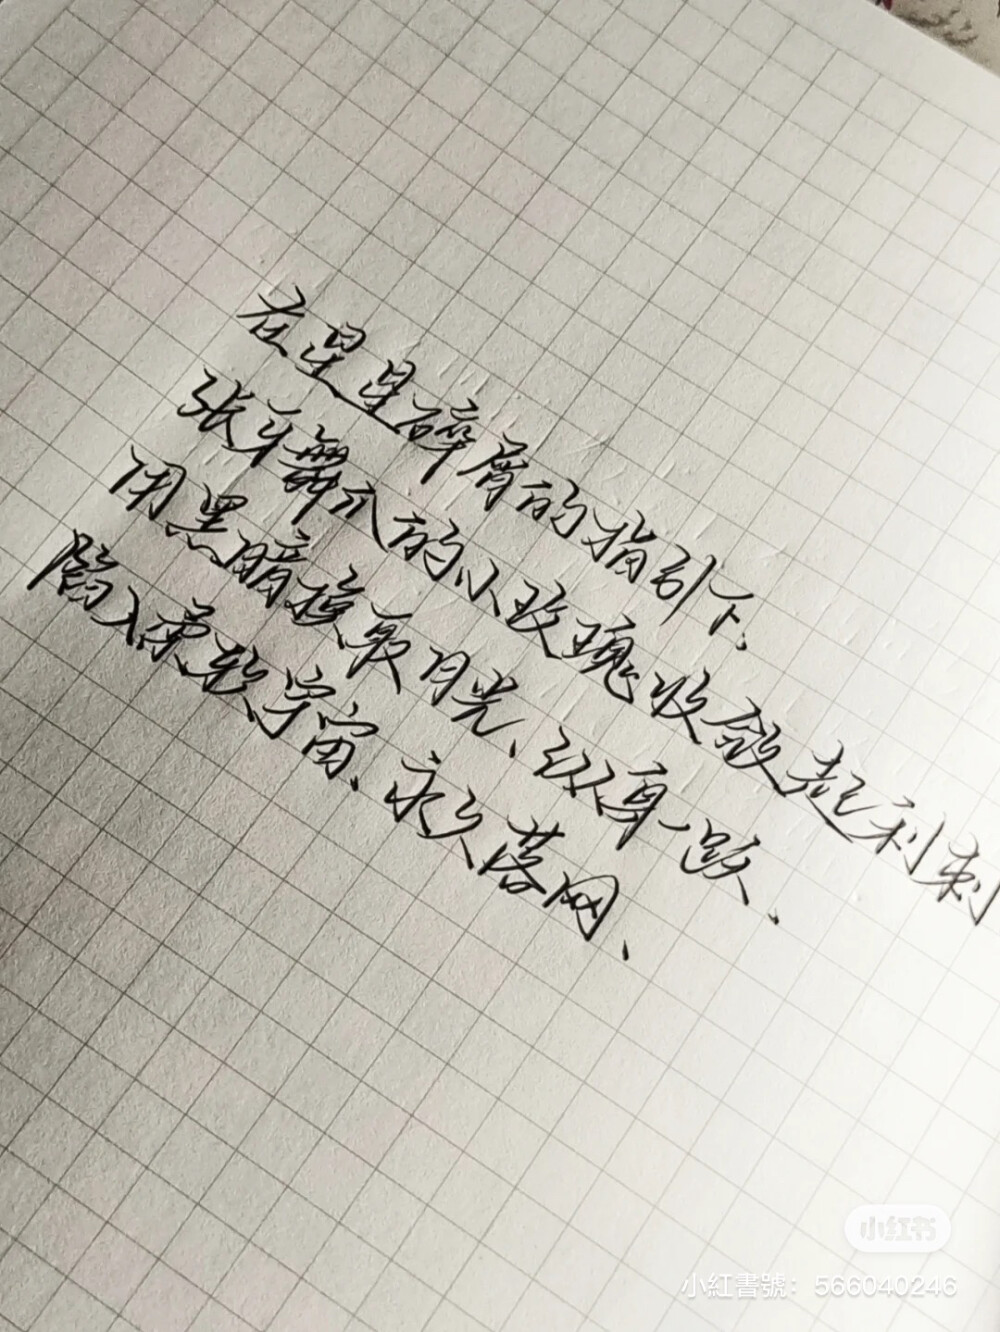 在星星碎屑的指引下.
张牙舞爪的小玫瑰收敛起利刺
用黑暗换取月光、纵身一跃、
陷入柔软宇宙、永久落网、
小红书
小紅書號：566040246